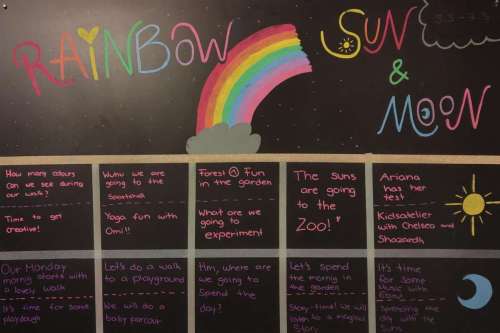 RAINBOW
SUN
&
MOON
3.3 - 7.3
How many colours
can we see during
our walk?
Time to get
creative!
Wuhu we are
going to the
Sportshall
Yoga fun with
Omi!!
Forest fun
in the garden
What are we
going to
experiment
The suns
are going
to the
Zoo!
Ariana
has her
test
Kidsatelier
with Chelsea and
Our Monday
mornig starts with
a lovely walk
It's time for some
playdough
Let's do a walk
to a playground
We will do a
baby parcour
Hm, where are
we going to
Spend the
day?
Let's spend
the mornig in
the garden
Story time! we will
listen to a magical
Story
It's time
for some
Music with
Spending the
day with the
Sun